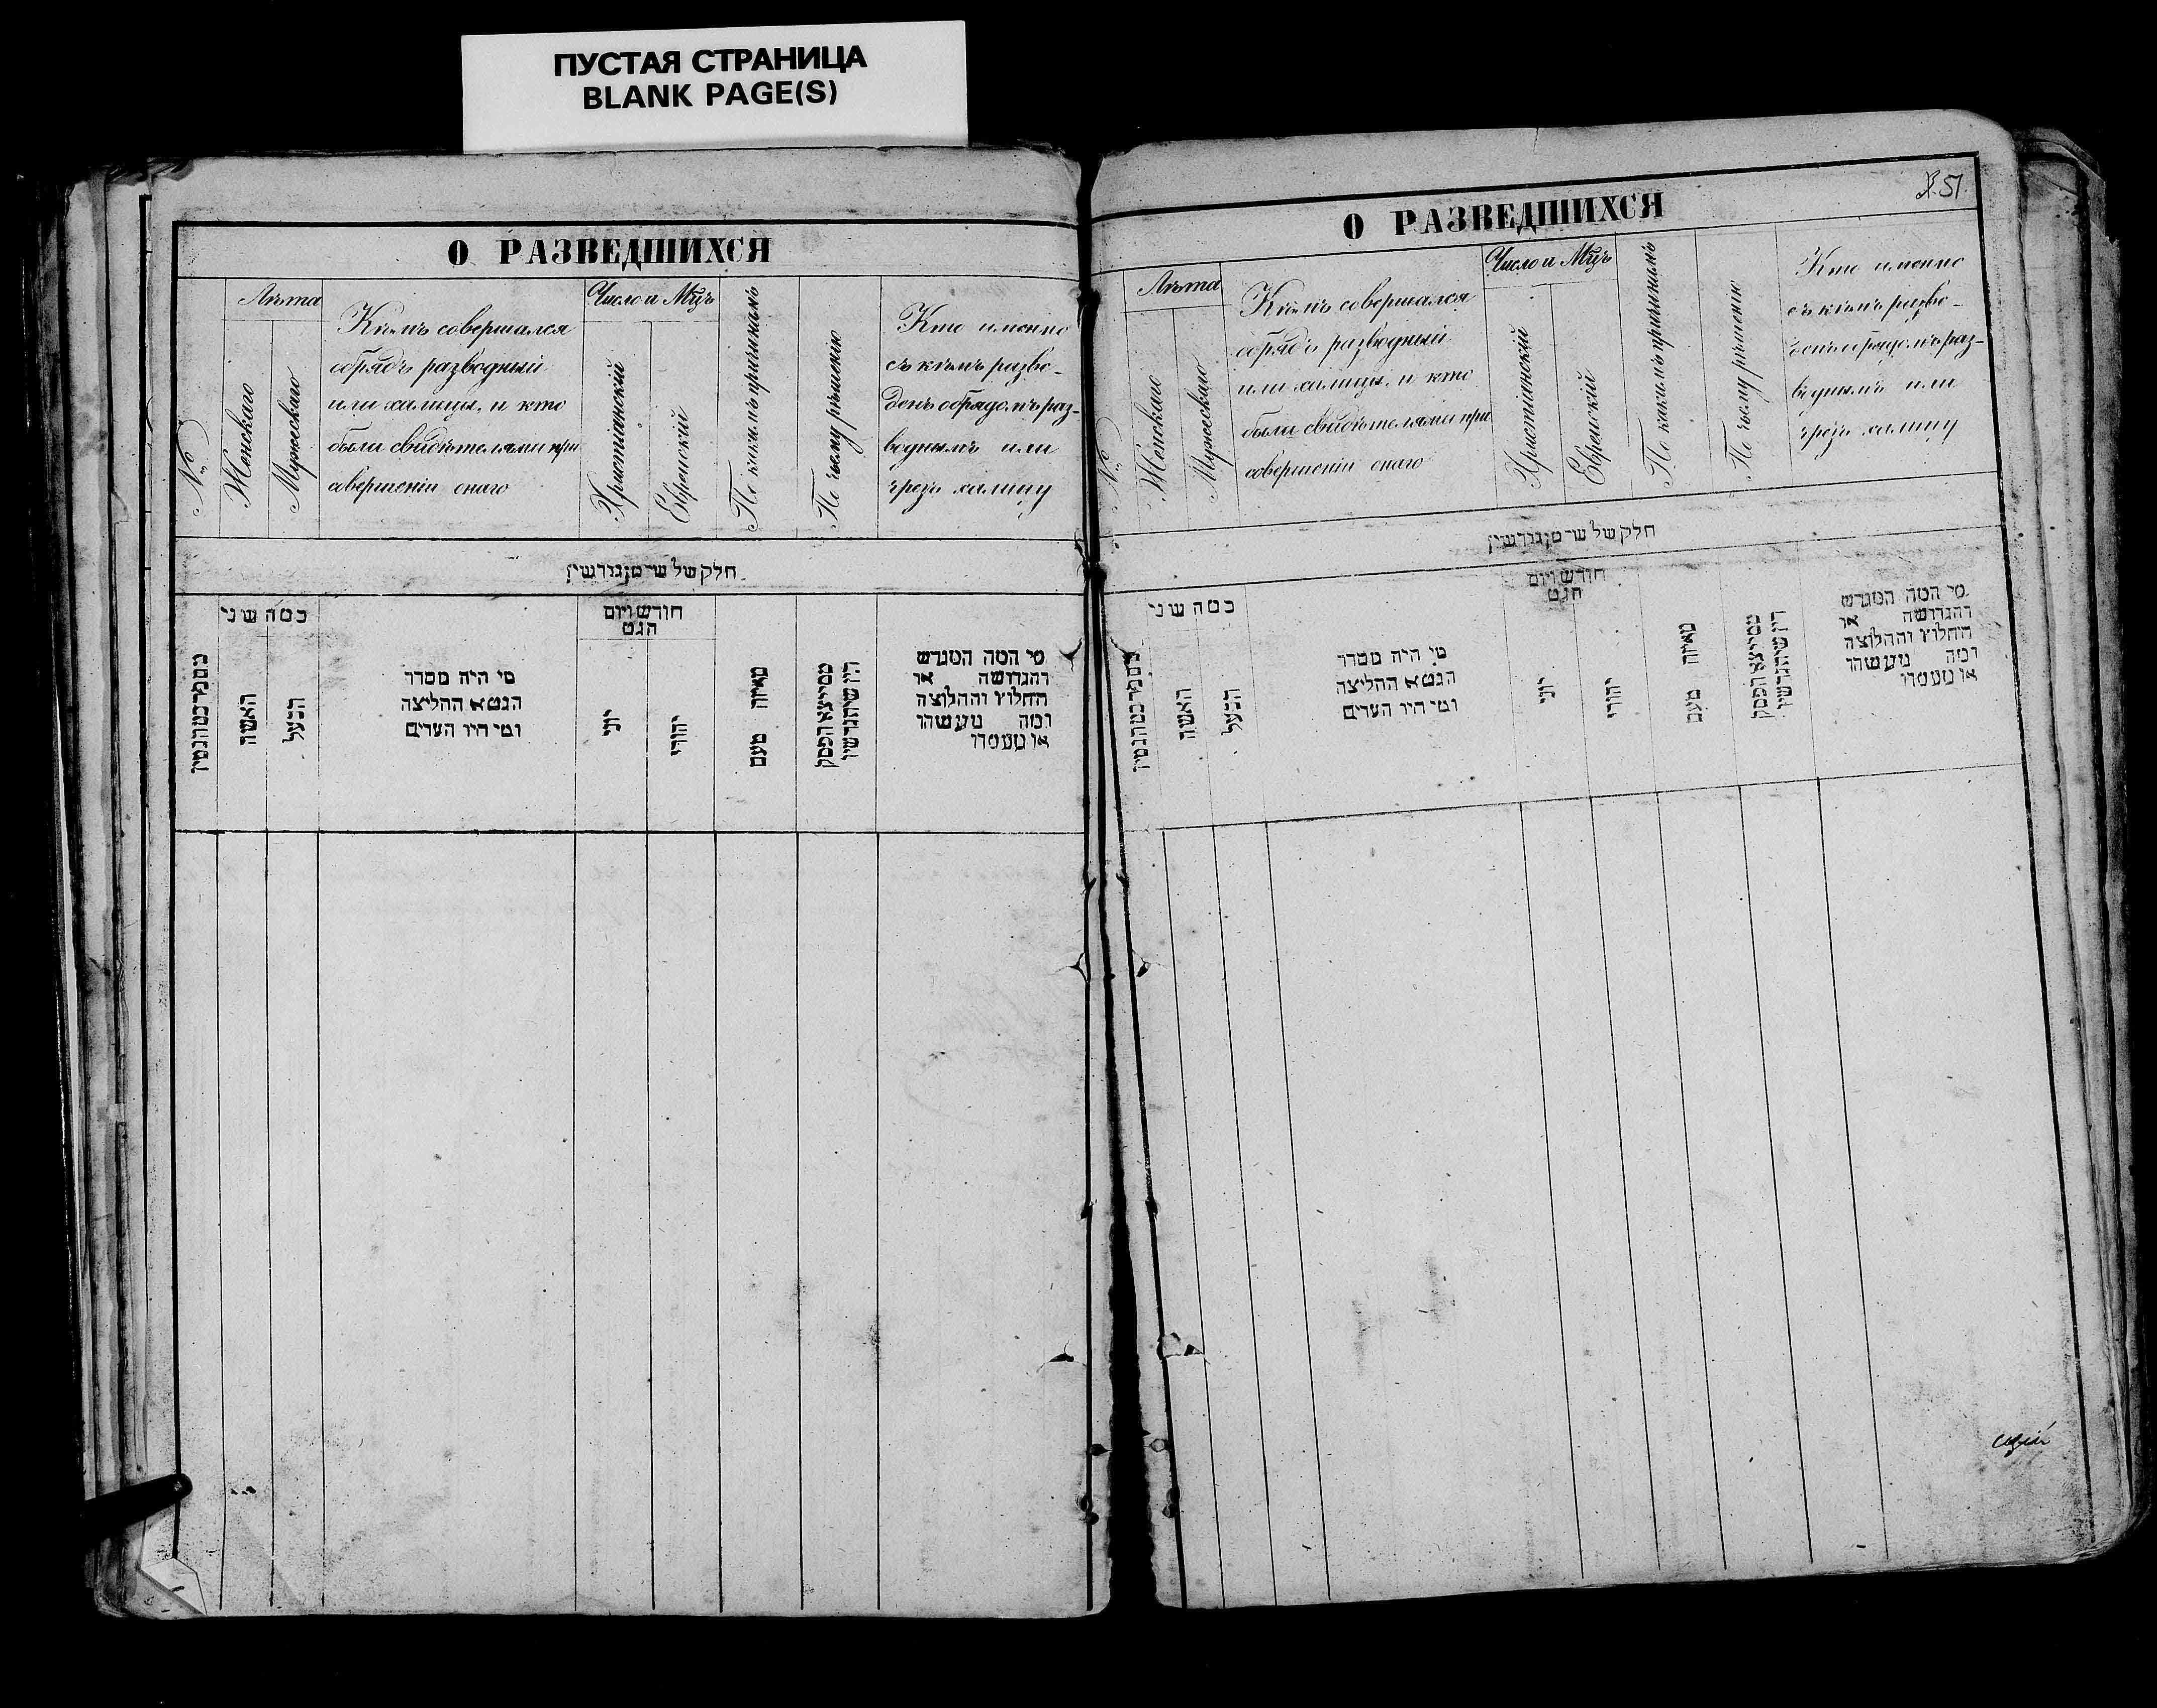 ПУСТАЯ СТРАНИЦА
BLANK PAGE(S)
О РАЗВЕДШИХСЯ
№
Лѣта
Женскаго
Мужескаго
Кѣмъ совершался
обрядъ разводный
или халицы, и кто
были свидѣтелями при
совершеніи онаго
Число и Мцъ
Христіанскій
Еврейскій
По какимъ причинамъ
По чьему рѣшенію
Кто именно
съ кѣмъ разве-
денъ обрядомъ раз-
воднымъ или
чрезъ халицу
חלק של שטן גורשין
כמה שני
האשה
הבעל
מי היה מסדר
הגט א החליצה
ומי היו העדים
חודש ויום
הגט
יוני
יהודי
מאיזה טעם
ממי יצא הפסק
דין שיתגרשו
מי המה המגרש
והגרושה או
החלוץ והחלוצה
ומה מעשהו
או מעמדו
51.
О РАЗВЕДШИХСЯ
№
Лѣта
Женскаго
Мужескаго
Кѣмъ совершался
обрядъ разводный
или халицы, и кто
были свидѣтелями при
совершеніи онаго
Число и Мцъ
Христіанскій
Еврейскій
По какимъ причинамъ
По чьему рѣшенію
Кто именно
съ кѣмъ разве-
денъ обрядомъ раз-
воднымъ или
чрезъ халицу
חלק של שטן גורשין
כמה שני
האשה
הבעל
מי היה מסדר
הגט א החליצה
ומי היו העדים
חודש ויום
הגט
יוני
יהודי
מאיזה טעם
ממי יצא הפסק
דין שיתגרשו
מי המה המגרש
והגרושה או
החלוץ והחלוצה
ומה מעשהו
או מעמדו